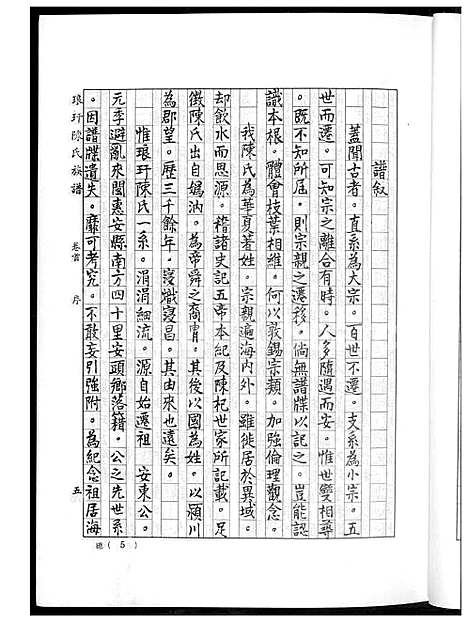 譜叙
蓋聞古者。直系為大宗。百世不遷。支系為小宗。五
世而遷。可知宗之離合有時。人多隨遇而安。惟世變相尋
。既不知所居。則宗親之遷移。倘無譜牒以記之。豈能認
識本根。體會枝葉相維。何以敦錫宗類。加強倫理觀念。
我陳氏為華夏著姓。宗親遍海內外。雖徙居於異域。
却飲水而思源。稽諸史記五帝本紀及陳杞世家所記載。足
徵陳氏出自媯汭。為帝舜之裔胄。其後以國為姓。以潁川
為郡望。歷三千餘年。寖熾寖昌。其由來也遠矣。
惟琅玕陳氏一系。涓涓細流。源自始遷祖　安東公。
元季避亂來閩惠安縣南方四十里安頭鄉落籍。公之先世系
。因譜牒遺失。靡可考究。不敢妄引強附。為紀念祖居海
琅玕陳氏族譜　卷首　序　五
總(5)